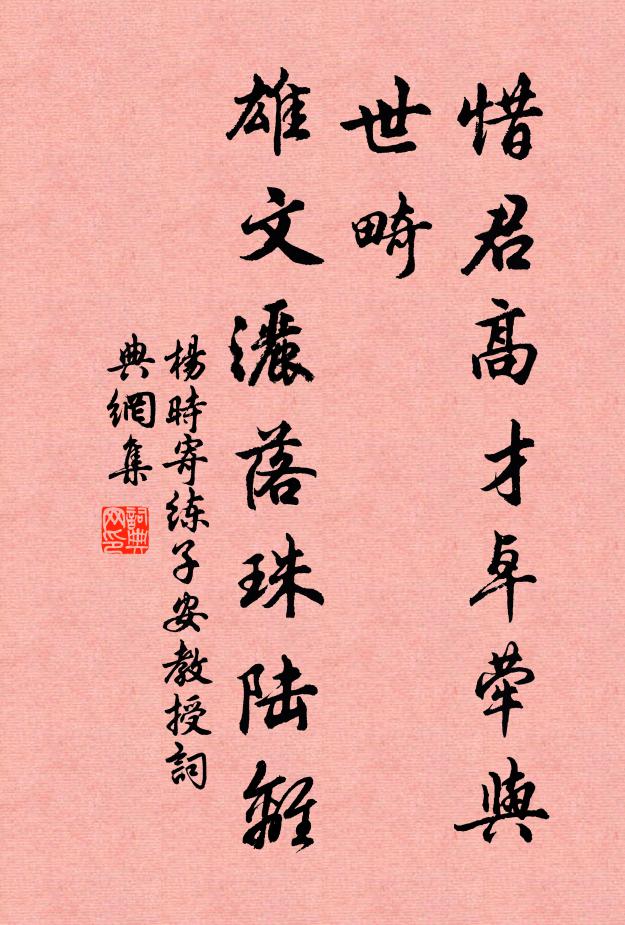 惜君高才卓犖與
世畸
雄文灑落珠陆離
楊時寄练子安教授詞
典網集
詞典网印